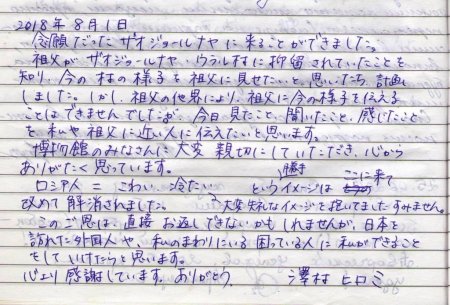 2018年8月1日
念願だったザオジョールナヤに来ることができました。
祖父がザオジョールナヤ・ウラル村に抑留されていたことを
知り、今の村の様子を祖父に見せたいと思いたち、計画
しました。しかし、祖父の他界により、祖父に今の様子を伝える
ことはできませんでしたが、今日見たこと、聞いたこと、感じたこと
を私や祖父に近い人に伝えたいと思います。
博物館のみなさんに大変親切にしていただき、心から
ありがたく思っています。
ロシア人 = こわい、冷たい という勝手イメージは ここに来て
改めて解消されました。 大変失礼なイメージを抱いてました。すみません。
このご恩は、直接お返しできないかもしれませんが、日本を
訪れた外国人や、私のまわりにいる困っている人に私ができること
をしていけたらと思います。
心より感謝しています。ありがとう。 澤村ヒロミ